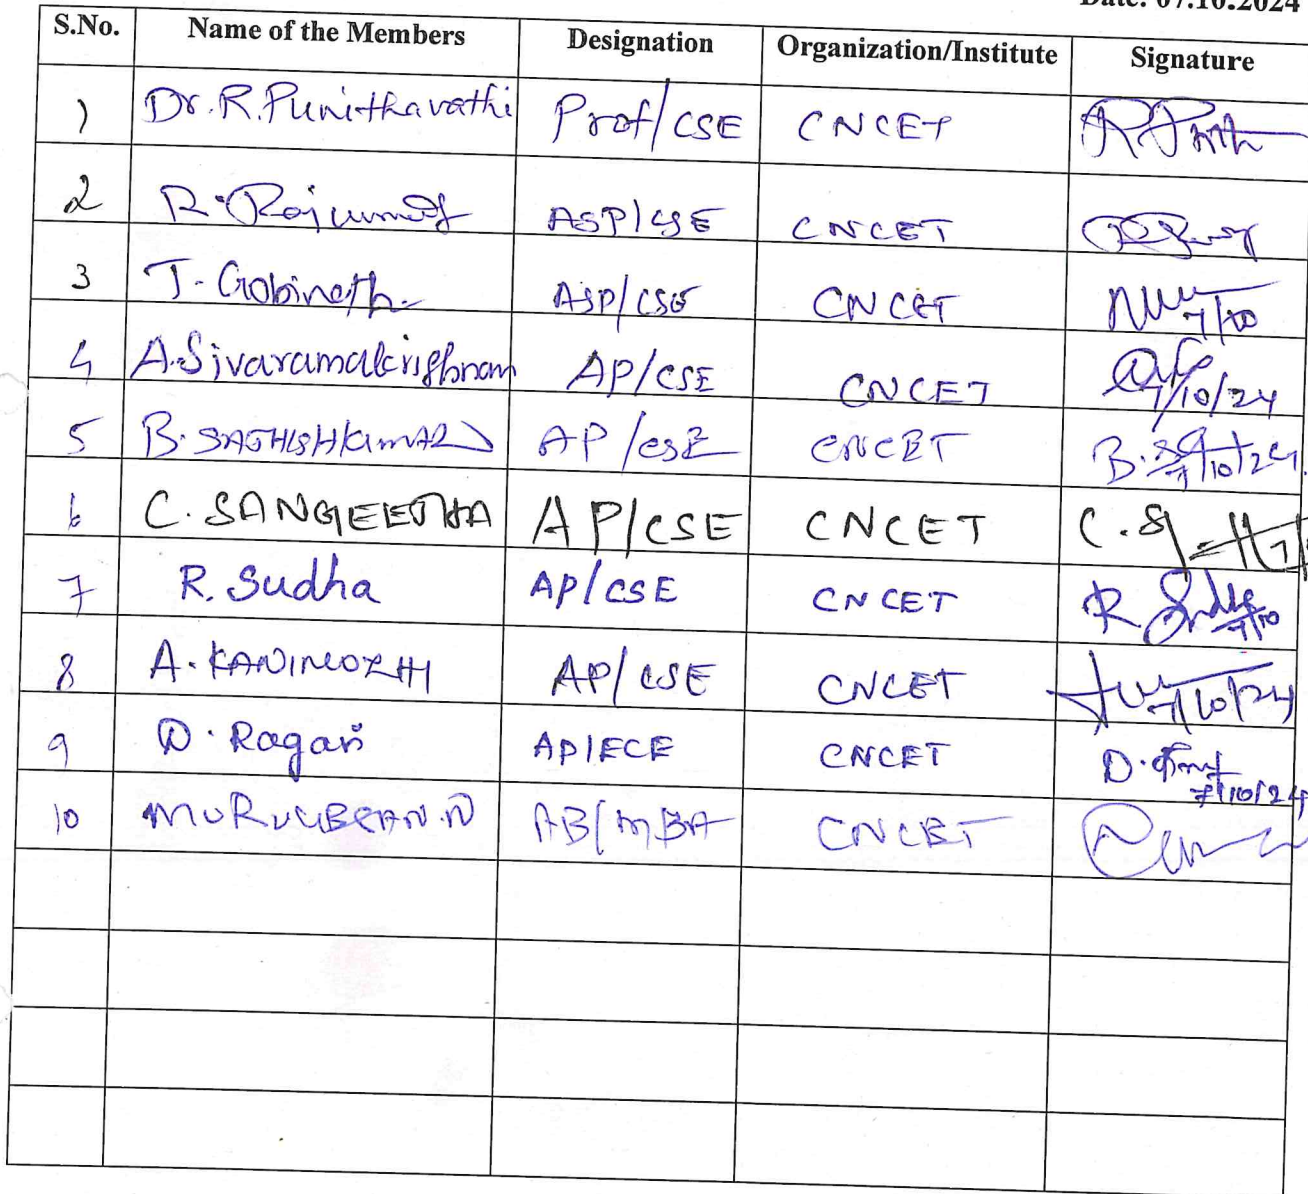 Date: 07.10.2024
S.No. Name of the Members Designation Organization/Institute Signature
1) Dr. R. Punithavathi Prof/CSE CNCET
2 R. Rajkumar ASP/CSE CNCET
3 T. Gobinath ASP/CSE CNCET 7/10
4 A. Sivaramakrishnan AP/CSE CNCET 7/10/24
5 B. SAGHISHKUMAR AP/CSE CNCET B. 7/10/24
6 C. SANGEETHA AP/CSE CNCET C. S
7 R. Sudha AP/CSE CNCET R Sudha 7/10
8 A. KANIMOZHI AP/CSE CNCET 7/10/24
9 D. Ragan AP/ECE CNCET D. 7/10/24
10 CNCET